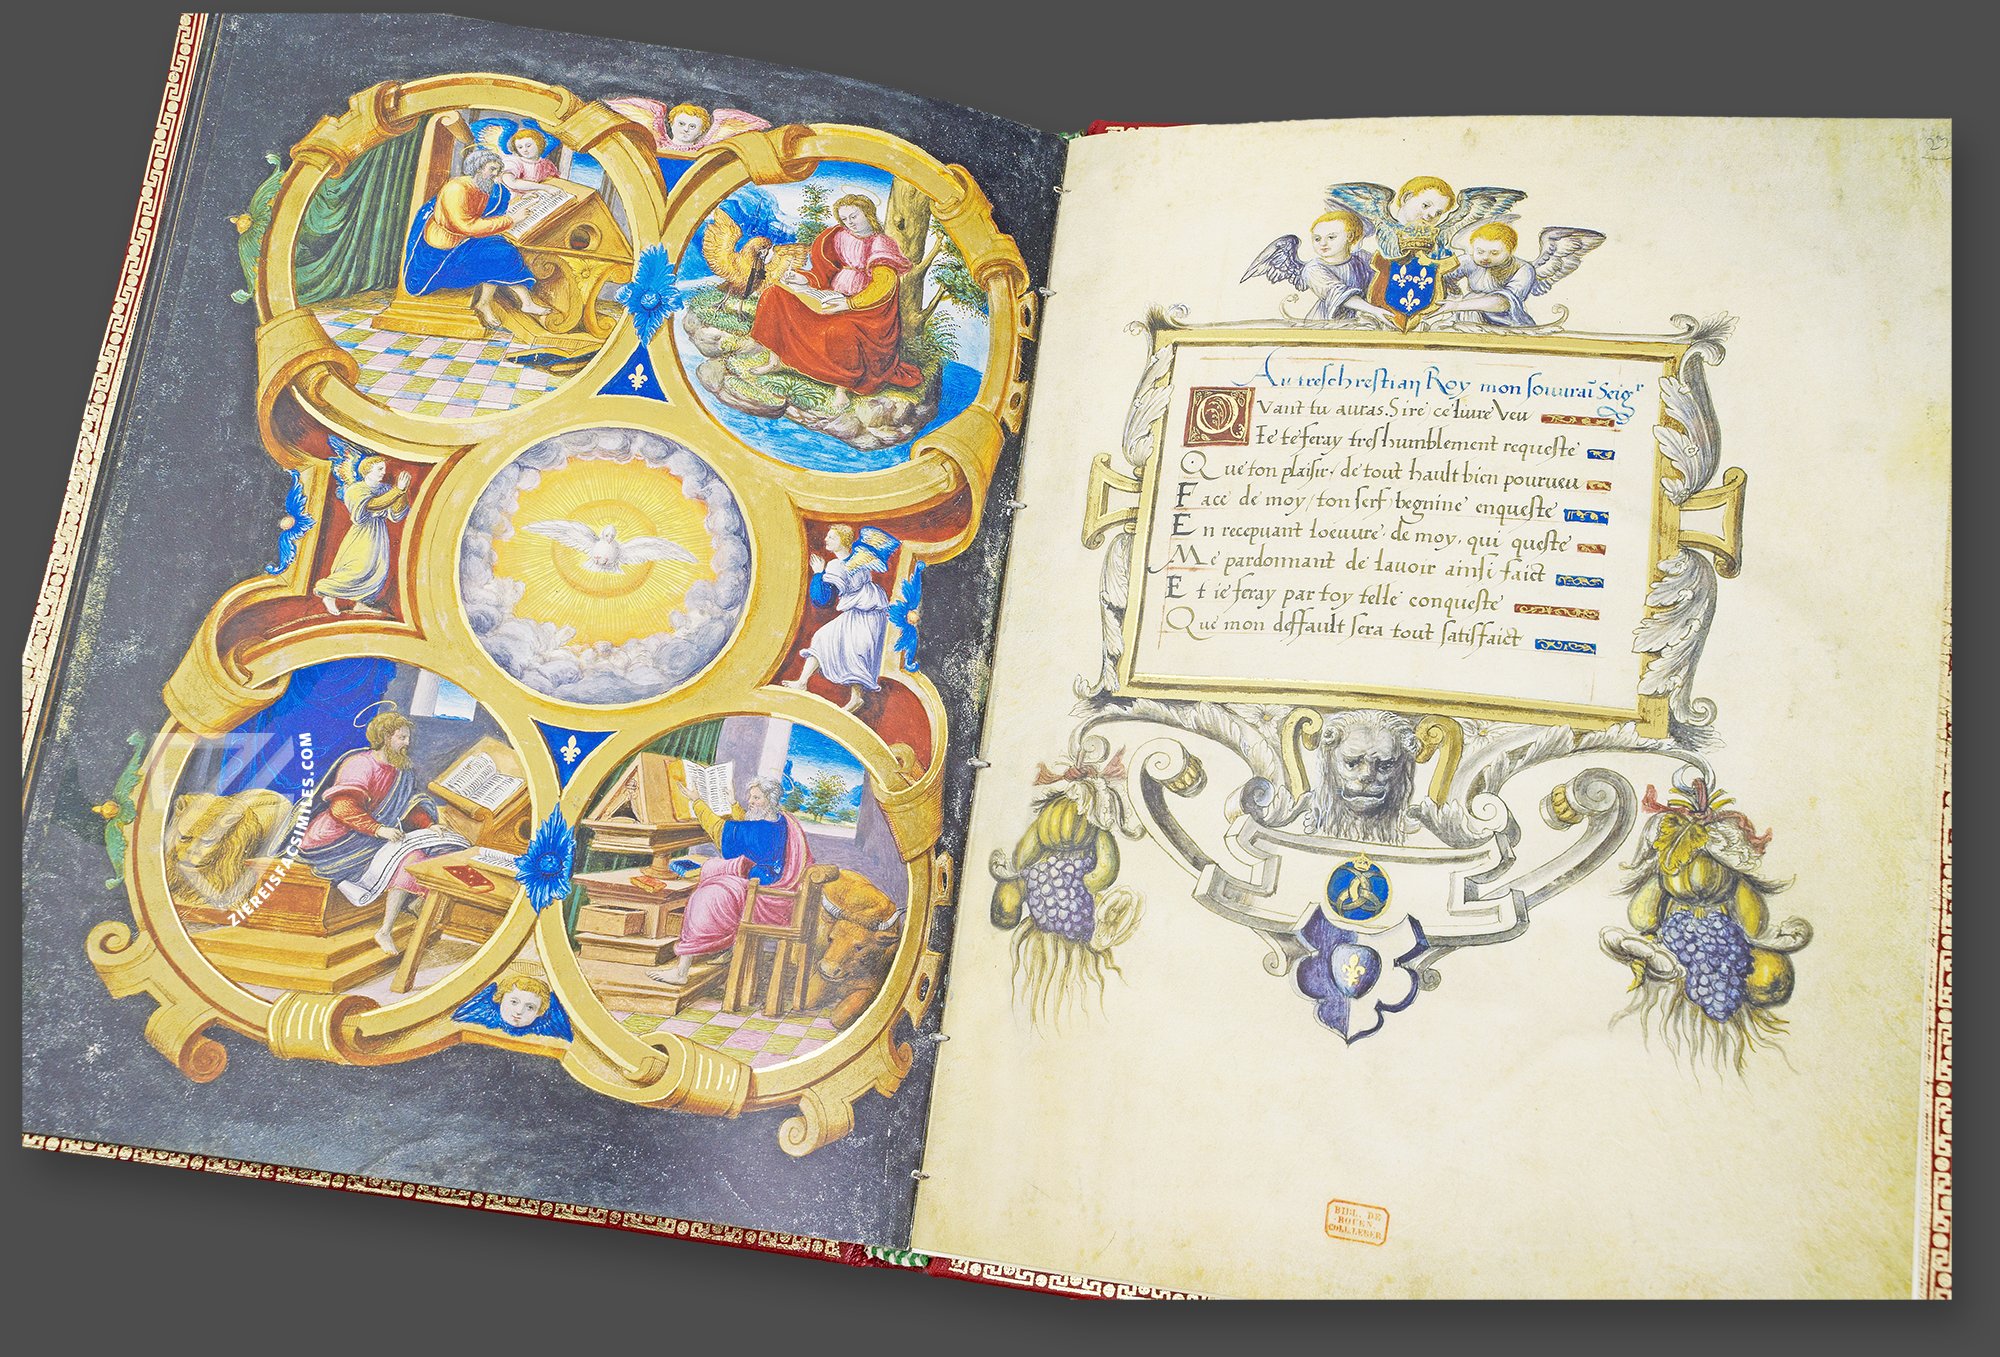 ZIEREISFACSIMILES.COM
23
Au treschrestian Roy mon souuraĩ Seigʳ
QVant tu auras. Sire ce liure Veu
Ie te feray tres humblement requeste
Que ton plaisir, de tout hault bien pourueu
Face de moy / ton serf, begnine enqueste
En recepuant loeuure, de moy, qui queste
Me pardonnant de lauoir ainsi faict
Et ie feray par toy telle conqueste
Que mon deffault sera tout satisfaict
BIBL. DE
ROUEN
COLL. LEBER